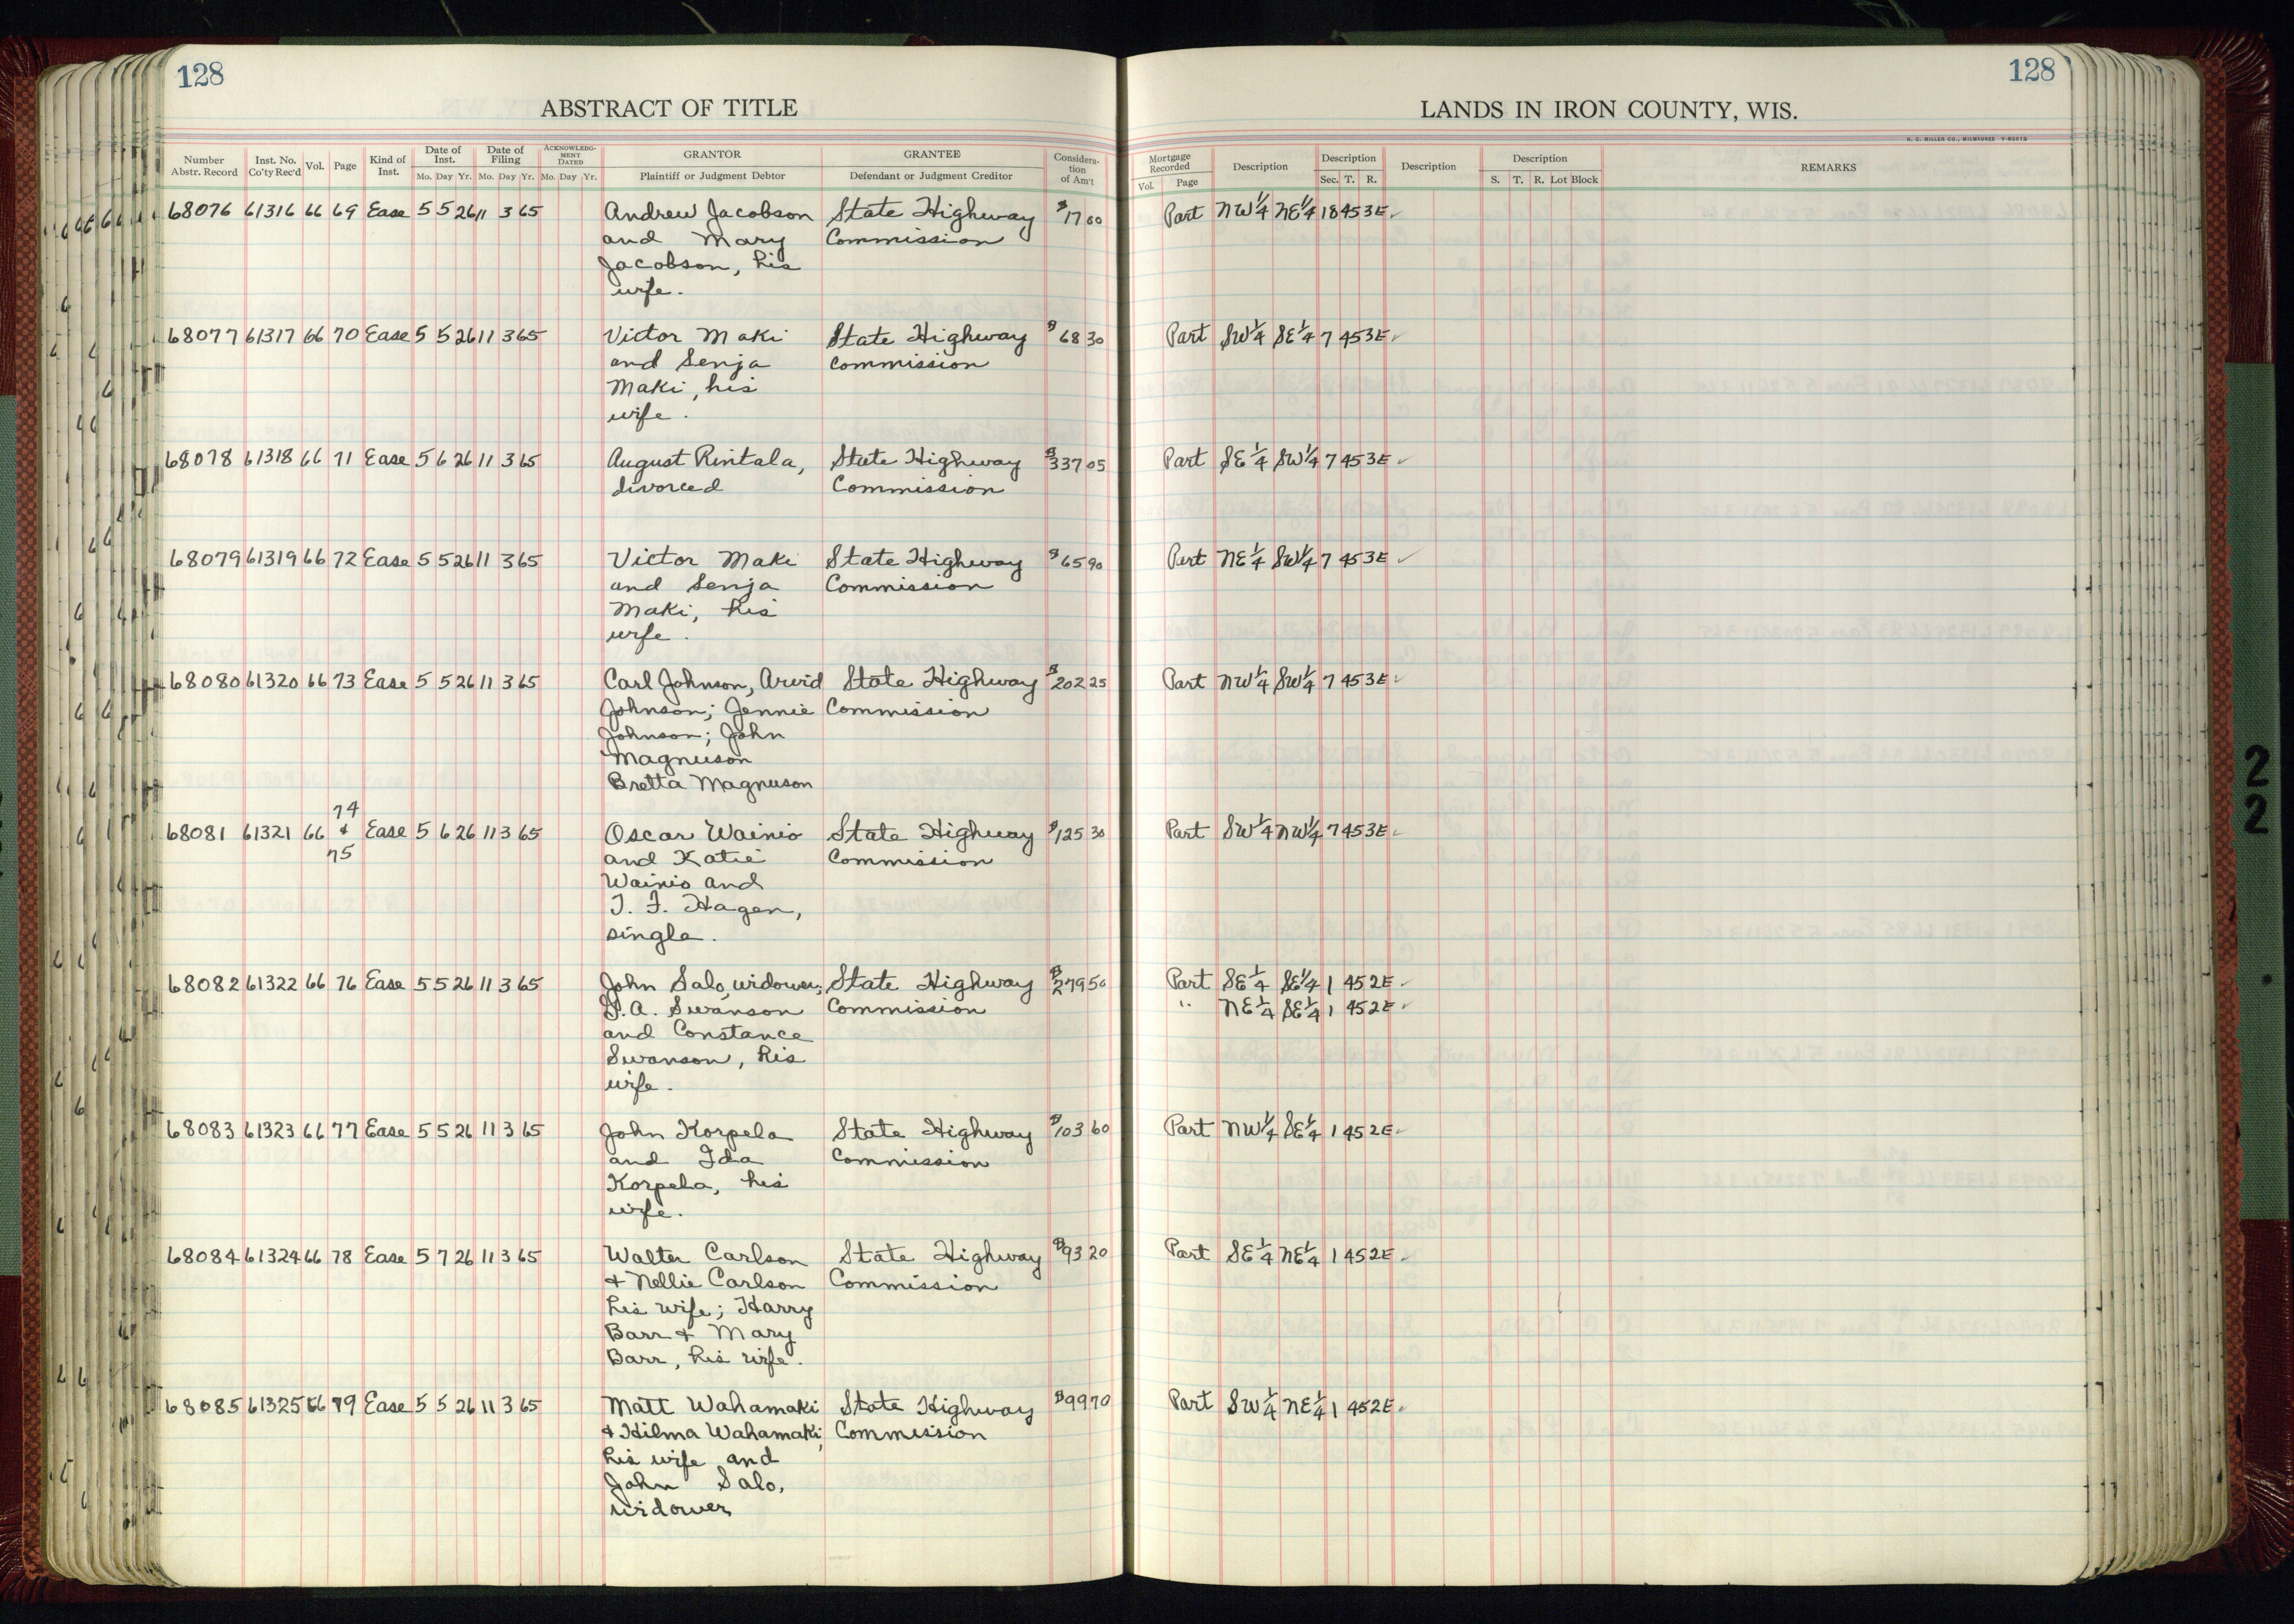 128
128
ABSTRACT OF TITLE
LANDS IN IRON COUNTY, WIS.
H. C. MILLER CO., MILWAUKEE
Number Abstr. Record | Inst. No. Co'ty Rec'd | Vol. | Page | Kind of Inst. | Date of Inst. Mo. Day Yr. | Date of Filing Mo. Day Yr. | ACKNOWLEDGMENT DATED Mo. Day Yr. | GRANTOR Plaintiff or Judgment Debtor | GRANTEE Defendant or Judgment Creditor | Consideration of Am't | Mortgage Recorded Vol. Page | Description | Description Sec. T. R. | Description | Description S. T. R. Lot Block | REMARKS
68076 61316 66 69 Ease 5 5 26 11 3 65 Andrew Jacobson State Highway $17 00 Part NW¼ NE¼ 18 45 3E ✓
and Mary Commission
Jacobson, his
wife.
68077 61317 66 70 Ease 5 5 26 11 3 65 Victor Maki State Highway $68 30 Part SW¼ SE¼ 7 45 3E ✓
and Senja Commission
Maki, his
wife.
68078 61318 66 71 Ease 5 6 26 11 3 65 August Rintala, State Highway $337 05 Part SE¼ SW¼ 7 45 3E ✓
divorced Commission
68079 61319 66 72 Ease 5 5 26 11 3 65 Victor Maki State Highway $65 90 Part NE¼ SW¼ 7 45 3E ✓
and Senja Commission
Maki, his
wife.
68080 61320 66 73 Ease 5 5 26 11 3 65 Carl Johnson, Arvid State Highway $202 25 Part NW¼ SW¼ 7 45 3E ✓
Johnson; Jennie Commission
Johnson; John
Magnuson
Bretta Magnuson
68081 61321 66 74 & 75 Ease 5 6 26 11 3 65 Oscar Wainio State Highway $125 30 Part SW¼ NW¼ 7 45 3E ✓
and Katie Commission
Wainio and
T. F. Hagen,
single.
68082 61322 66 76 Ease 5 5 26 11 3 65 John Salo, widower; State Highway $279 50 Part SE¼ SE¼ 1 45 2E ✓
A. Swanson Commission " NE¼ SE¼ 1 45 2E ✓
and Constance
Swanson, his
wife.
68083 61323 66 77 Ease 5 5 26 11 3 65 John Korpela State Highway $103 60 Part NW¼ SE¼ 1 45 2E ✓
and Ida Commission
Korpela, his
wife.
68084 61324 66 78 Ease 5 7 26 11 3 65 Walter Carlson State Highway $93 20 Part SE¼ NE¼ 1 45 2E ✓
& Nellie Carlson Commission
his wife; Harry
Barr & Mary
Barr, his wife.
68085 61325 66 79 Ease 5 5 26 11 3 65 Matt Wahamaki State Highway $99 70 Part SW¼ NE¼ 1 45 2E ✓
& Hilma Wahamaki, Commission
his wife and
John Salo,
widower
2
2